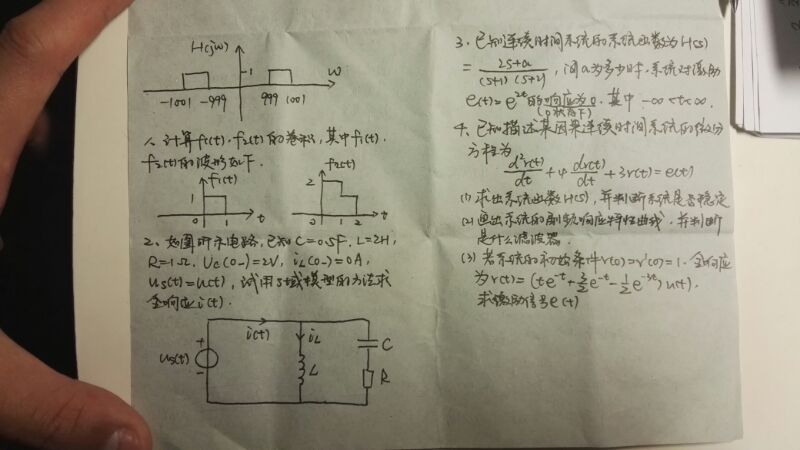 H(jw)
1
w
-1001 -999 999 1001
一、计算f₁(t)、f₂(t)的卷积，其中f₁(t)、
f₂(t)的波形如下.
f₁(t)
1
0 1 t
f₂(t)
2
0 1 2 t
2、如图所示电路，已知C=0.5F, L=2H,
R=1Ω. Uc(0-)=2V, iL(0-)=0A,
us(t)=u(t), 试用S域模型的方法求
全响应i(t).
i(t)
iL
+
us(t)
-
L
C
R
3、已知连续时间系统的系统函数为H(s)
= (2s+a)/((s+1)(s+2)), 问a为多少时, 系统对激励
e(t)=e^{2t}的响应为0. 其中 -∞<t<∞.
(0状态下)
4、已知描述某因果连续时间系统的微分
方程为
d²r(t)/dt + 4 dr(t)/dt + 3r(t) = e(t)
(1) 求出系统函数H(s), 并判断系统是否稳定
(2) 画出系统的幅频响应特性曲线, 并判断
是什么滤波器.
(3) 若系统的初始条件r(0)=r'(0)=1. 全响应
为r(t)=(te^{-t}+3/2 e^{-t}-1/2 e^{-3t})u(t).
求激励信号e(t)